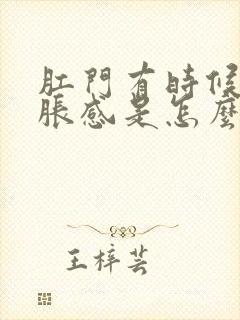 肛門有時候
脹感是怎麼
王梓芸